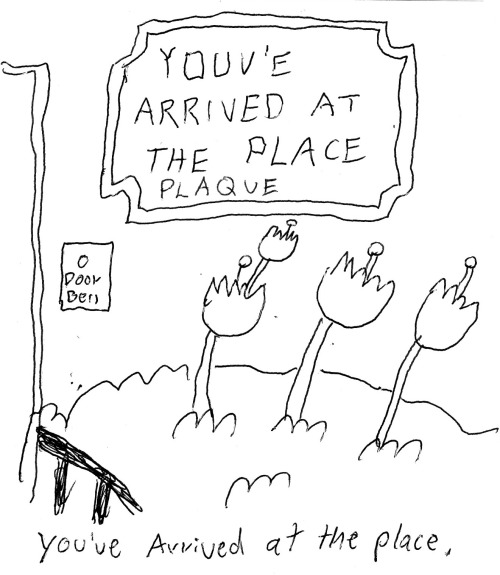 YOUV'E
ARRIVED AT
THE PLACE
PLAQUE
Door
Bell
You've Arrived at the place.